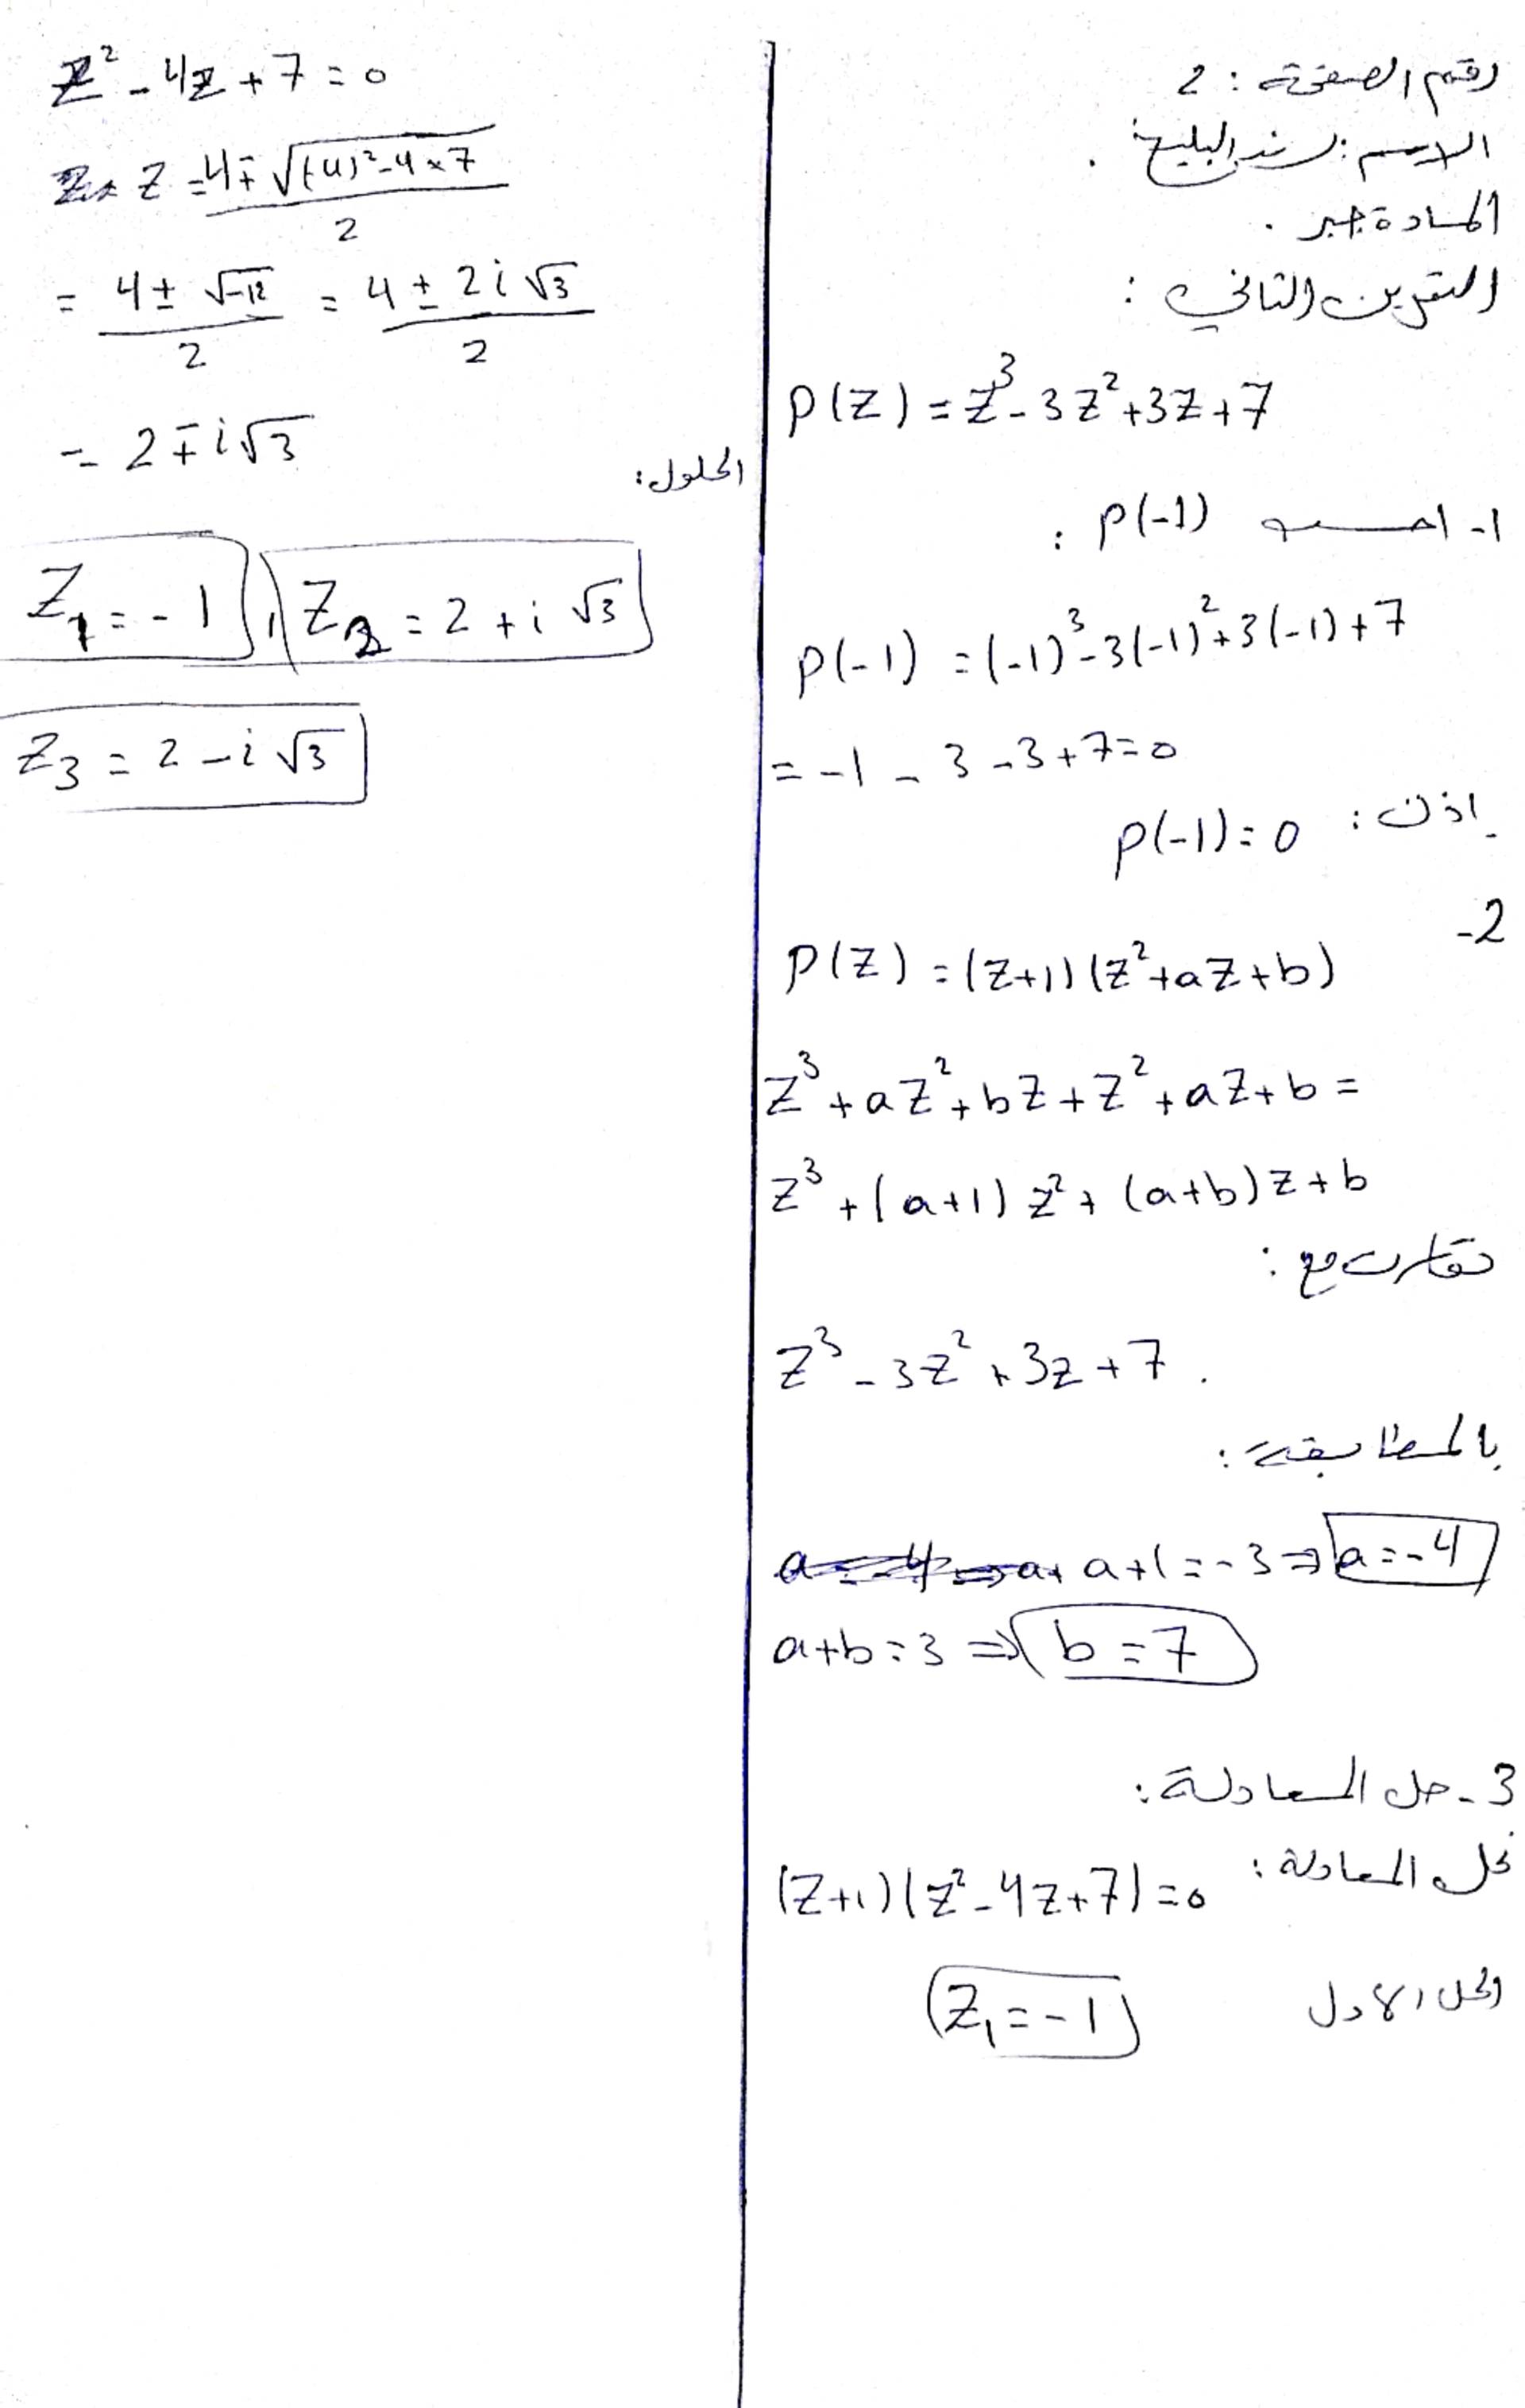 رقم الصفحة: 2
الاسم: رند البليخ.
المادة جبر.
التمرين الثاني:
P(Z) = Z³ - 3Z² + 3Z + 7
1- احسب P(-1) :
P(-1) = (-1)³ - 3(-1)² + 3(-1) + 7
= -1 - 3 - 3 + 7 = 0
إذن: P(-1) = 0
2-
P(Z) = (Z+1)(Z² + aZ + b)
Z³ + aZ² + bZ + Z² + aZ + b =
Z³ + (a+1)Z² + (a+b)Z + b
نقارن مع:
Z³ - 3Z² + 3Z + 7 .
بالمطابقة:
a+1 = -3 ⇒ a = -4
a+b = 3 ⇒ b = 7
3- حل المعادلة:
نحل المعادلة: (Z+1)(Z² - 4Z + 7) = 0
الحل الاول Z₁ = -1
Z² - 4Z + 7 = 0
Z = 4 ∓ √((-4)² - 4×7) / 2
= 4 ± √-12 / 2 = 4 ± 2i√3 / 2
= 2 ∓ i√3
الحلول:
Z₁ = -1 , Z₂ = 2 + i√3
Z₃ = 2 - i√3